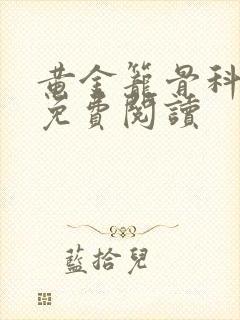 黃金籠骨科
免費閱讀
藍拾兒